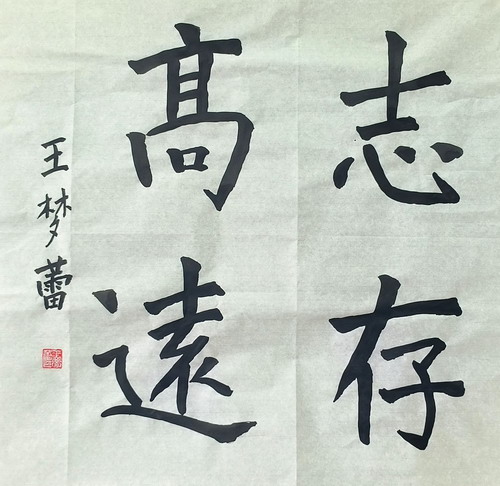 志存
髙遠
王梦蕾